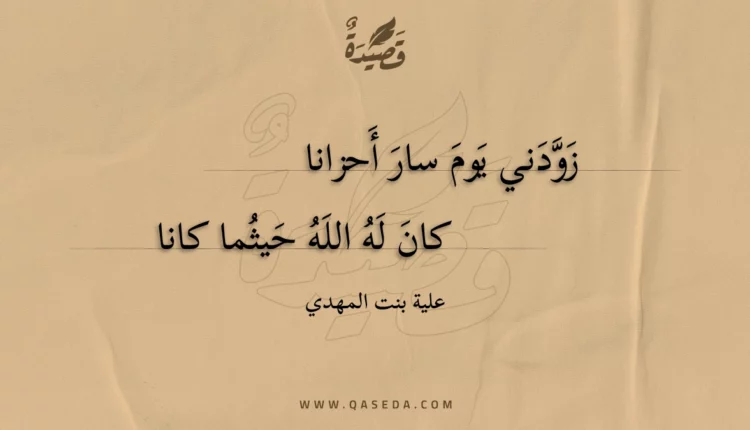 قَصِيْدَةٌ
زَوَّدَني يَومَ سارَ أَحزانا
كانَ لَهُ اللَهُ حَيثُما كانا
علية بنت المهدي
WWW.QASEDA.COM